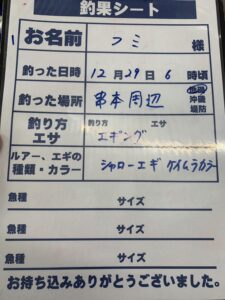 釣果シート
お名前 フミ 様
釣った日時 12月29日6時頃
釣った場所 串本周辺 地磯 沖磯 堤防
釣り方 エサ 釣り方 エサ
エギング
ルアー、エギの種類・カラー シャローエギ ケイムラカラー
魚種 サイズ
魚種 サイズ
魚種 サイズ
お持ち込みありがとうございました。